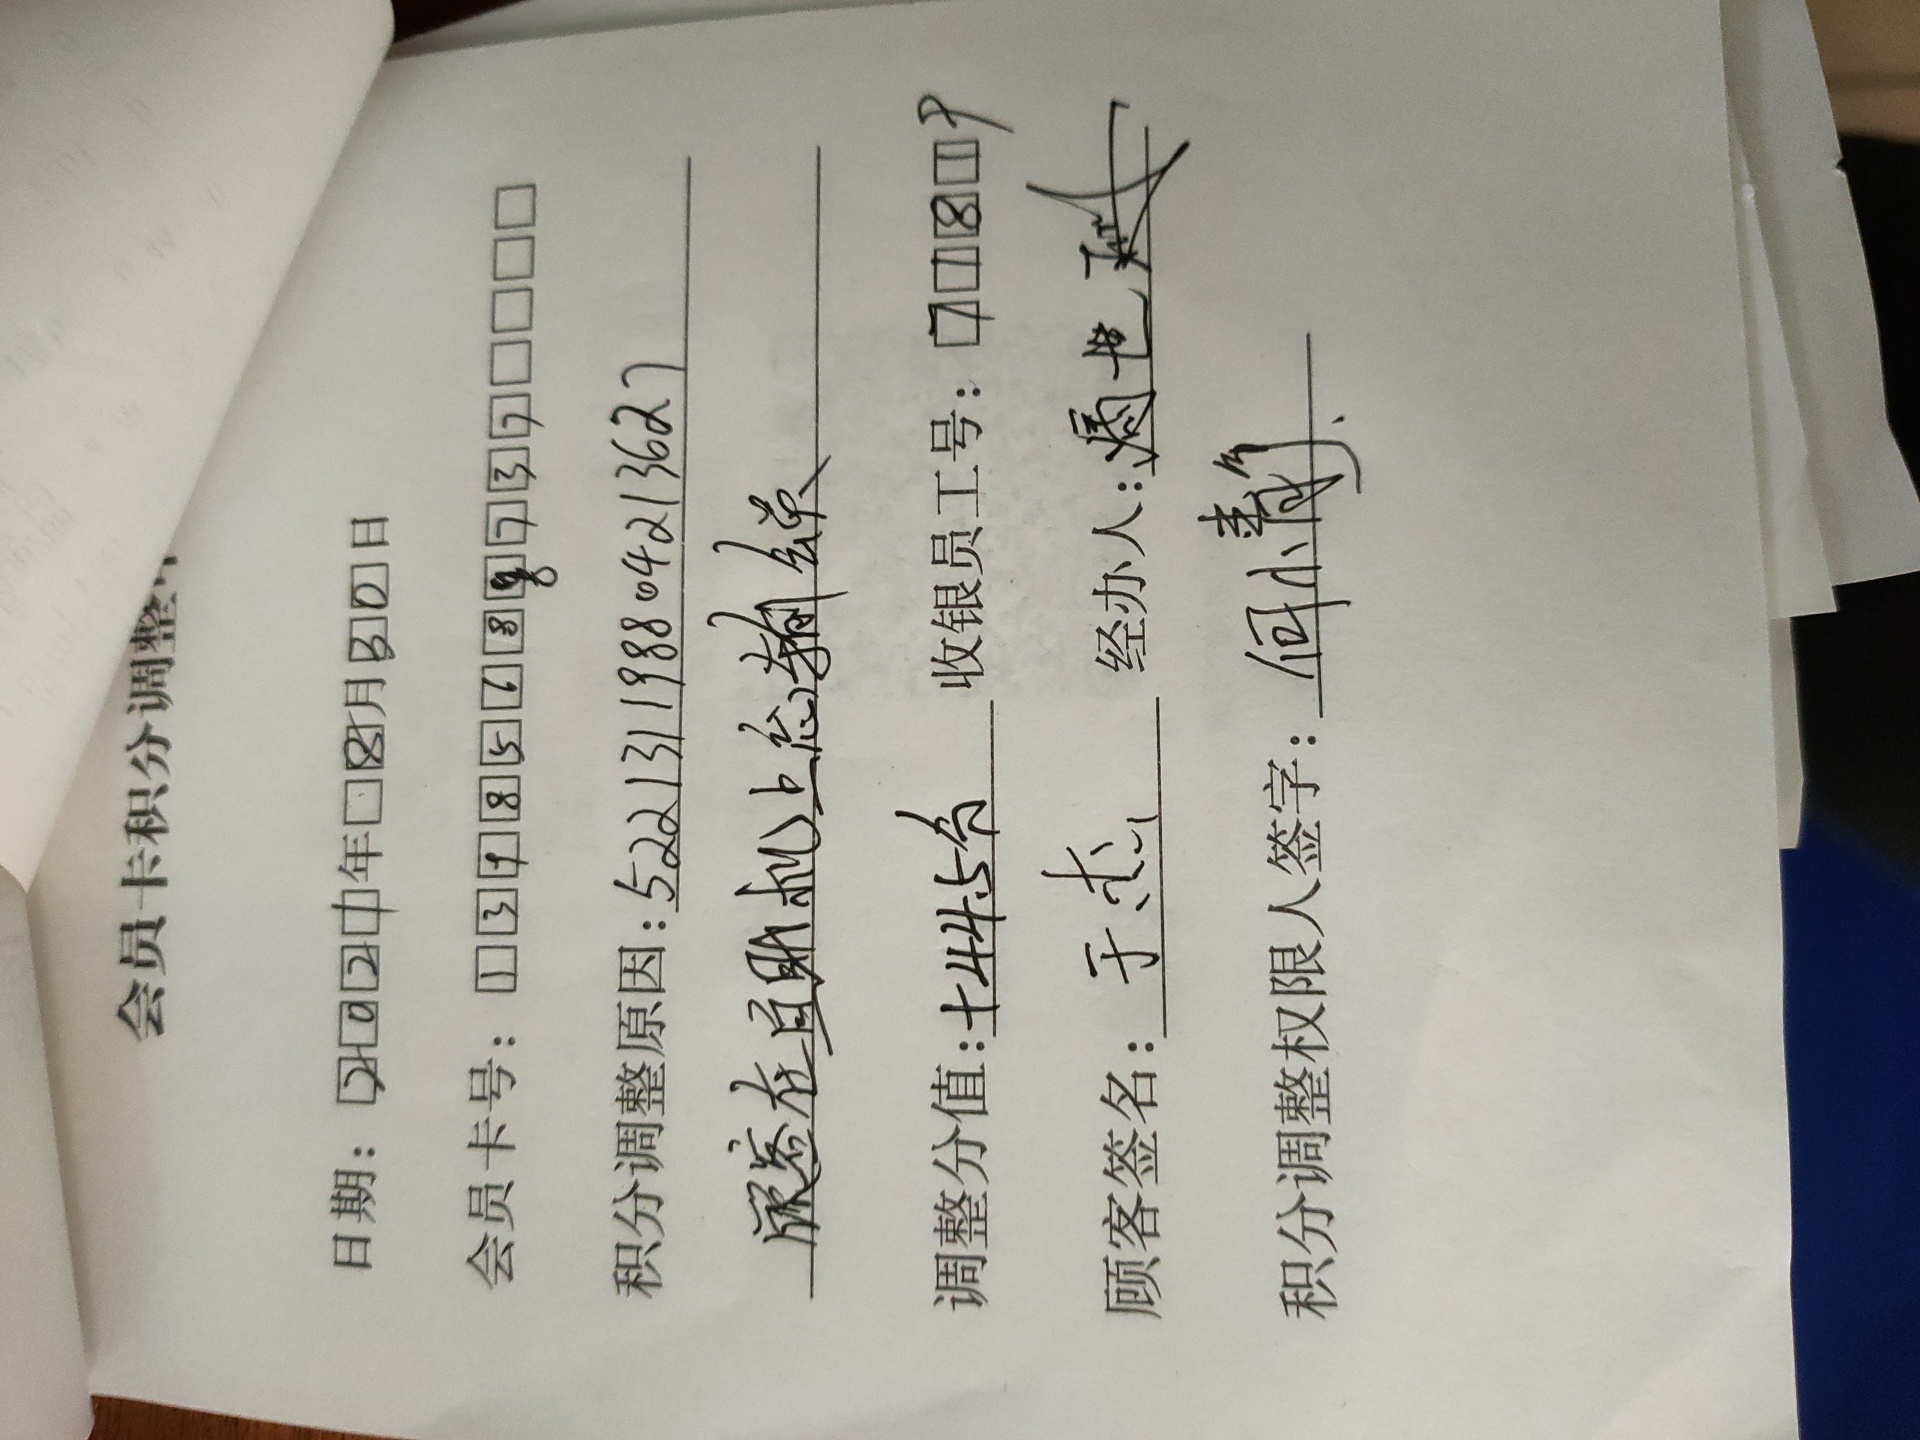 会员卡积分调整单
日期：2021年8月30日
会员卡号：13985618873 7
积分调整原因：522131198804213627
顾客在自助机上忘输会员
调整分值：+445分 收银员工号：7189
顾客签名：于杰 经办人：
积分调整权限人签字：何小静